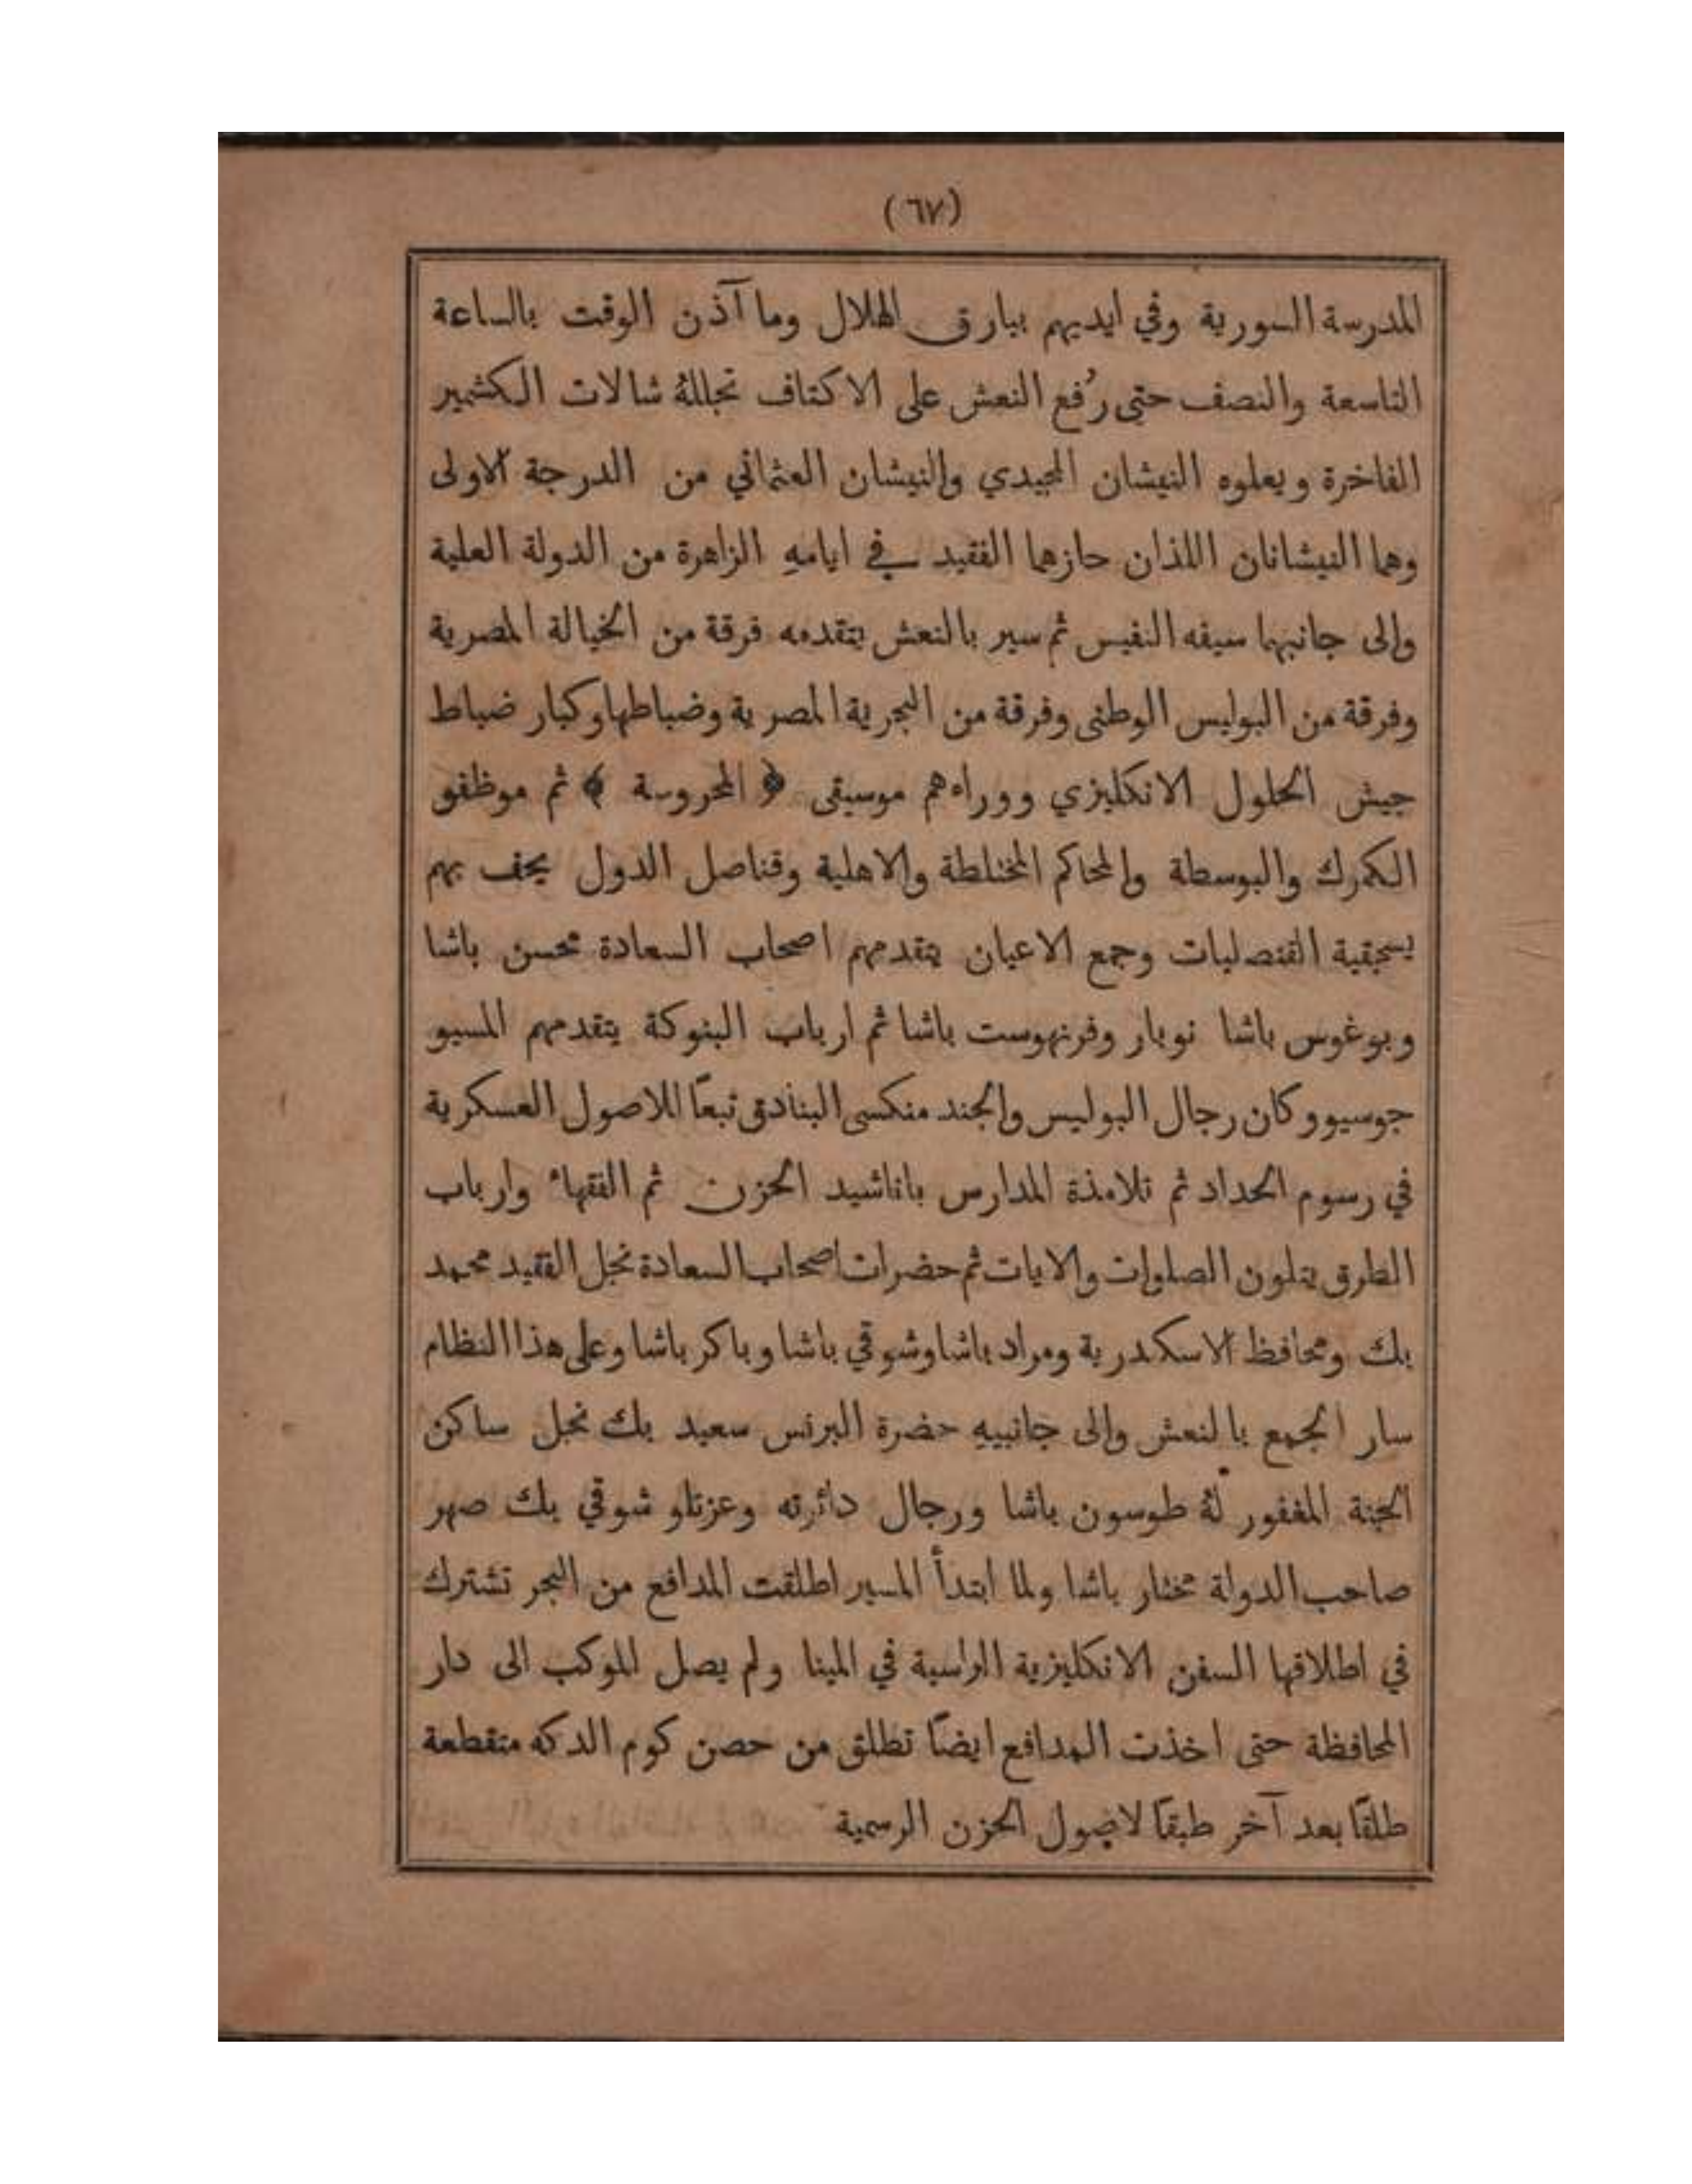 (٦٧)
المدرسة السورية وفي ايديهم بيارق الهلال وما آذن الوقت بالساعة
التاسعة والنصف حتى رُفع النعش على الاكتاف تجللهُ شالات الكشمير
الفاخرة ويعلوه النيشان المجيدي والنيشان العثماني من الدرجة الاولى
وهما النيشانان اللذان حازهما الفقيد في ايامهِ الزاهرة من الدولة العلية
والى جانبهما سيفه النفيس ثم سير بالنعش يتقدمه فرقة من الخيالة المصرية
وفرقة من البوليس الوطنى وفرقة من البحرية المصرية وضباطها وكبار ضباط
جيش الحلول الانكليزي ووراءهم موسيقى ﴿ المحروسة ﴾ ثم موظفو
الكمرك والبوسطة والمحاكم المختلطة والاهلية وقناصل الدول يحف بهم
يسجقية القنصليات وجمع الاعيان يتقدمهم اصحاب السعادة محسن باشا
وبوغوس باشا نوبار وفرنهوست باشا ثم ارباب البنوكة يتقدمهم المسيو
جوسيو وكان رجال البوليس والجند منكسى البنادق تبعًا للاصول العسكرية
في رسوم الحداد ثم تلامذة المدارس باناشيد الحزن ثم الفقهاء وارباب
الطرق يتلون الصلوات والايات ثم حضرات اصحاب السعادة نجل الفقيد محمد
بك ومحافظ الاسكندرية ومراد باشا وشوقي باشا وباكر باشا وعلى هذا النظام
سار الجمع بالنعش والى جانبيهِ حضرة البرنس سعيد بك نجل ساكن
الجنة المغفور لهُ طوسون باشا ورجال دائرته وعزتلو شوقي بك صهر
صاحب الدولة مختار باشا ولما ابتدأ المسير اطلقت المدافع من البحر تشترك
في اطلاقها السفن الانكليزية الراسية في المينا ولم يصل الموكب الى دار
المحافظة حتى اخذت المدافع ايضًا تطلق من حصن كوم الدكه متقطعة
طلقًا بعد آخر طبقًا لاصول الحزن الرسمية